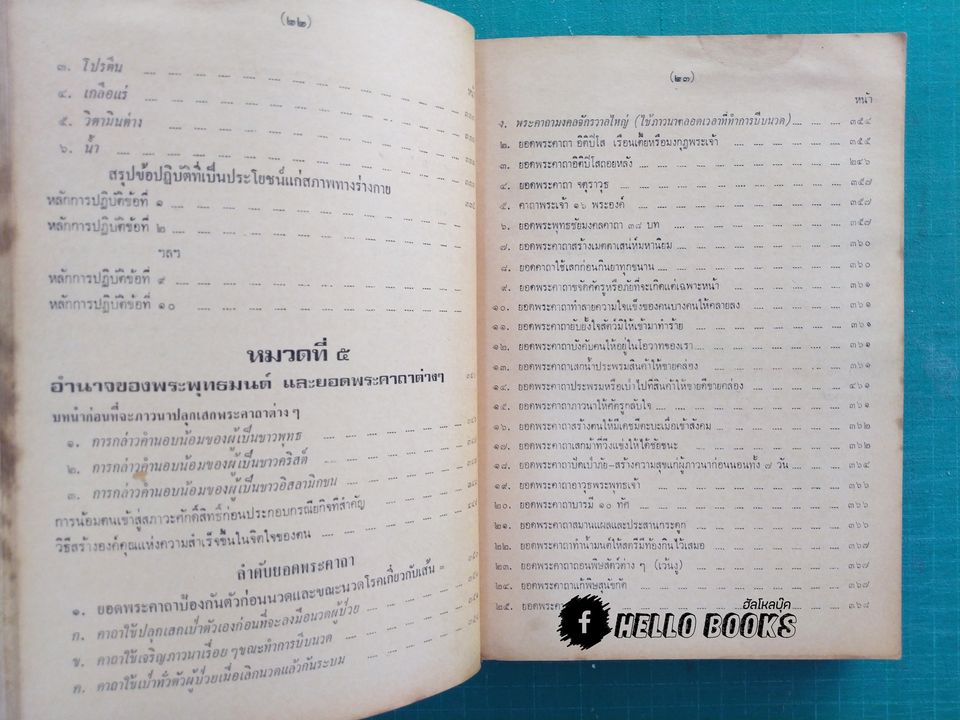 (๒๒)
๓. โปรตีน
๔. เกลือแร่
๕. วิตามินต่าง
๖. น้ำ
สรุปข้อปฏิบัติที่เป็นประโยชน์แก่สภาพทางร่างกาย
หลักการปฏิบัติข้อที่ ๑
หลักการปฏิบัติข้อที่ ๒
ฯลฯ
หลักการปฏิบัติข้อที่ ๙
หลักการปฏิบัติข้อที่ ๑๐
หมวดที่ ๕
อำนาจของพระพุทธมนต์ และยอดพระคาถาต่างๆ
บทนำก่อนที่จะภาวนาปลุกเสกพระคาถาต่าง ๆ
๑. การกล่าวคำนอบน้อมของผู้เป็นชาวพุทธ
๒. การกล่าวคำนอบน้อมของผู้เป็นชาวคริสต์
๓. การกล่าวคำนอบน้อมของผู้เป็นชาวอิสลามิกชน
การน้อมตนเข้าสู่สภาวะศักดิ์สิทธิ์ก่อนประกอบกรณียกิจที่สำคัญ
วิธีสร้างองค์คุณแห่งความสำเร็จขึ้นในจิตใจของตน
ลำดับยอดพระคาถา
๑. ยอดพระคาถาป้องกันตัวก่อนนวดและขณะนวดโรคเกี่ยวกับเส้น
ก. คาถาใช้ปลุกเสกเป่าตัวเองก่อนที่จะลงมือนวดผู้ป่วย
ข. คาถาใช้เจริญภาวนาเรื่อยๆขณะทำการบีบนวด
ค. คาถาใช้เป่าทั่วตัวผู้ป่วยเมื่อเลิกนวดแล้วกันระบม
(๒๓)
หน้า
ง. พระคาถามงคลจักรวาลใหญ่ (ใช้ภาวนาตลอดเวลาที่ทำการบีบนวด) ๓๕๔
๒. ยอดพระคาถา อิติปิโส เรือนเตี้ยหรือมงกุฎพระเจ้า ๓๕๕
๓. ยอดพระคาถาอิติปิโสถอยหลัง ๒๔๖
๔. ยอดพระคาถา จตุราวุธ ๓๕๗
๕. คาถาพระเจ้า ๑๖ พระองค์ ๓๕๗
๖. ยอดพระพุทธชัยมงคลคาถา ๓๘ บท ๓๕๗
๗. ยอดพระคาถาสร้างเมตตาเสน่ห์มหานิยม ๓๖๐
๘. ยอดคาถาใช้เสกก่อนกินยาทุกขนาน ๓๖๐
๙. ยอดพระคาถาขจัดศัตรูหรือภัยที่จะเกิดแต่เฉพาะหน้า ๓๖๑
๑๐. ยอดพระคาถาทำลายความใจแข็งของคนบางคนให้คลายลง ๓๖๑
๑๑. ยอดพระคาถายับยั้งใจสัตว์มิให้เข้ามาทำร้าย ๓๖๑
๑๒. ยอดพระคาถาบังคับคนให้อยู่ในโอวาทของเรา ๓๖๑
๑๓. ยอดพระคาถาเสกน้ำประพรมสินค้าให้ขายคล่อง ๓๖๑
๑๔. ยอดพระคาถาประพรมหรือเป่าไปที่สินค้าให้ขายดีขายคล่อง ๔๖๑
๑๕. ยอดพระคาถาภาวนาให้ศัตรูกลับใจ ๓๖๑
๑๖. ยอดพระคาถาสร้างตนให้มีเดชมีตะบะเมื่อเข้าสังคม ๓๖๑
๑๗. ยอดพระคาถาเสกม้าที่วิ่งแข่งให้ได้ชัยชนะ ๓๖๒
๑๘. ยอดพระคาถาปัดเป่าภัย-สร้างความสุขแก่ผู้ภาวนาก่อนนอนทั้ง ๗ วัน ๓๖๔
๑๙. ยอดพระคาถาอาวุธพระพุทธเจ้า ๓๖๖
๒๐. ยอดพระคาถาบารมี ๑๐ ทัศ ๓๖๖
๒๑. ยอดพระคาถาสมานแผลและประสานกระดูก ๓๖๖
๒๒. ยอดพระคาถาทำน้ำมนต์ให้สตรีมีท้องกินไว้เสมอ ๓๖๗
๒๓. ยอดพระคาถาถอนพิษสัตว์ต่าง ๆ (เว้นงู) ๓๖๗
๒๔. ยอดพระคาถาแก้พิษสุนัขกัด ๓๖๗
๒๕. ยอดพระค ๓๖๘
ฮัลโหลบุ๊ค
f HELLO BOOKS